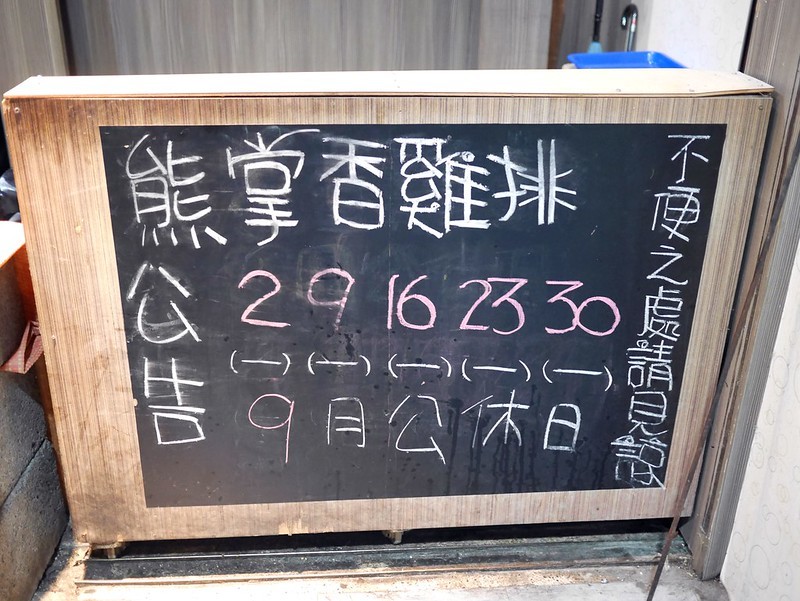 熊掌香雞排
公告
2 9 16 23 30
(一) (一) (一) (一) (一)
9月公休日
不便之處請見諒